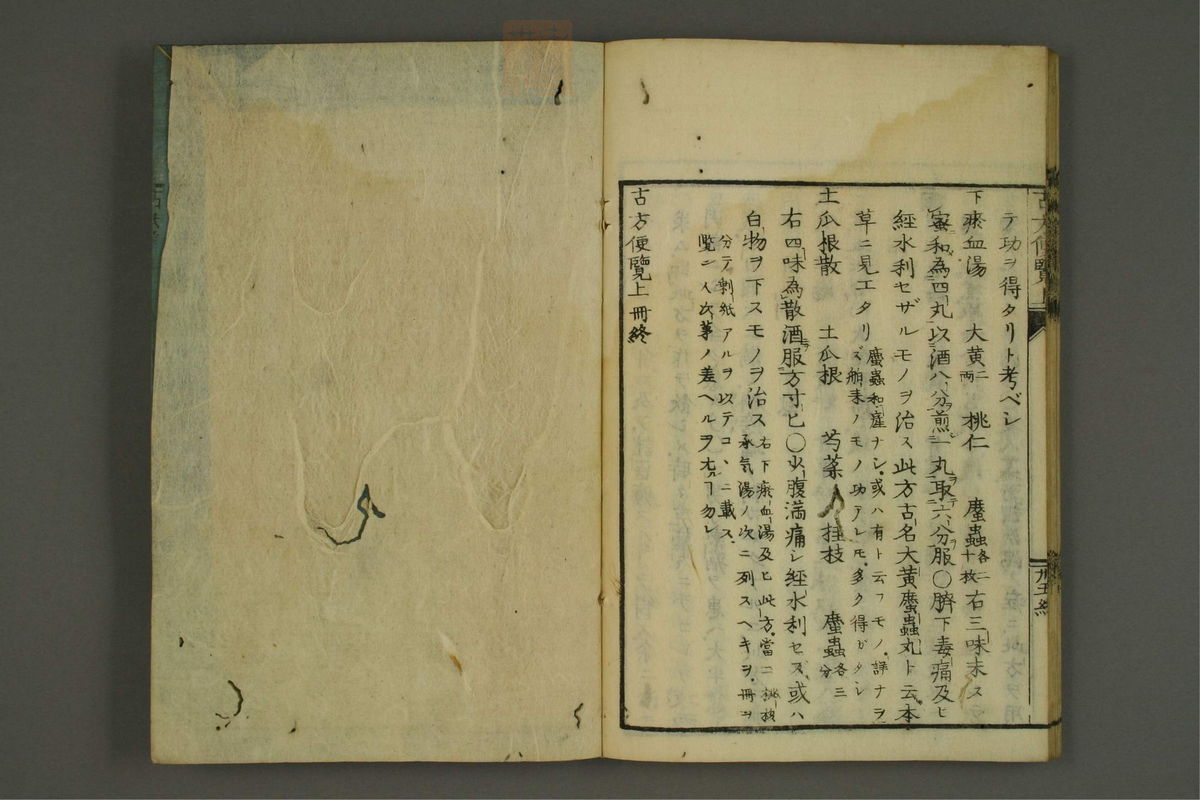 テ功ヲ得タリト考ベシ
下瘀血湯　大黄二両　桃仁　䗪蟲各二十枚　右三味末スラ
蜜和為四丸以酒八分煎一丸取六分服〇臍下毒痛及ヒ
經水利セザルモノヲ治ス此方古名大黄䗪蟲丸ト云本
草ニ見エタリ䗪蟲和産ナシ或ハ有ト云フモノ詳ナラ
ズ舶来ノモノ功アレモ多ク得ガタシ
土瓜根散　土瓜根　芍薬　桂枝　䗪蟲各三分
右四味為散酒服方寸匕〇少腹満痛シ經水利セズ或ハ
白物ヲ下スモノヲ治ス右下瘀血湯及ヒ此方當ニ桃核
承氣湯ノ次ニ列スヘキヲ冊ヲ
分テ剰紙アルヲ以テコヽニ載ス
覽ン人次第ノ差ヘルヲ尤ㄱ勿レ
古方便覽上冊終
古方便覽上
卅五終